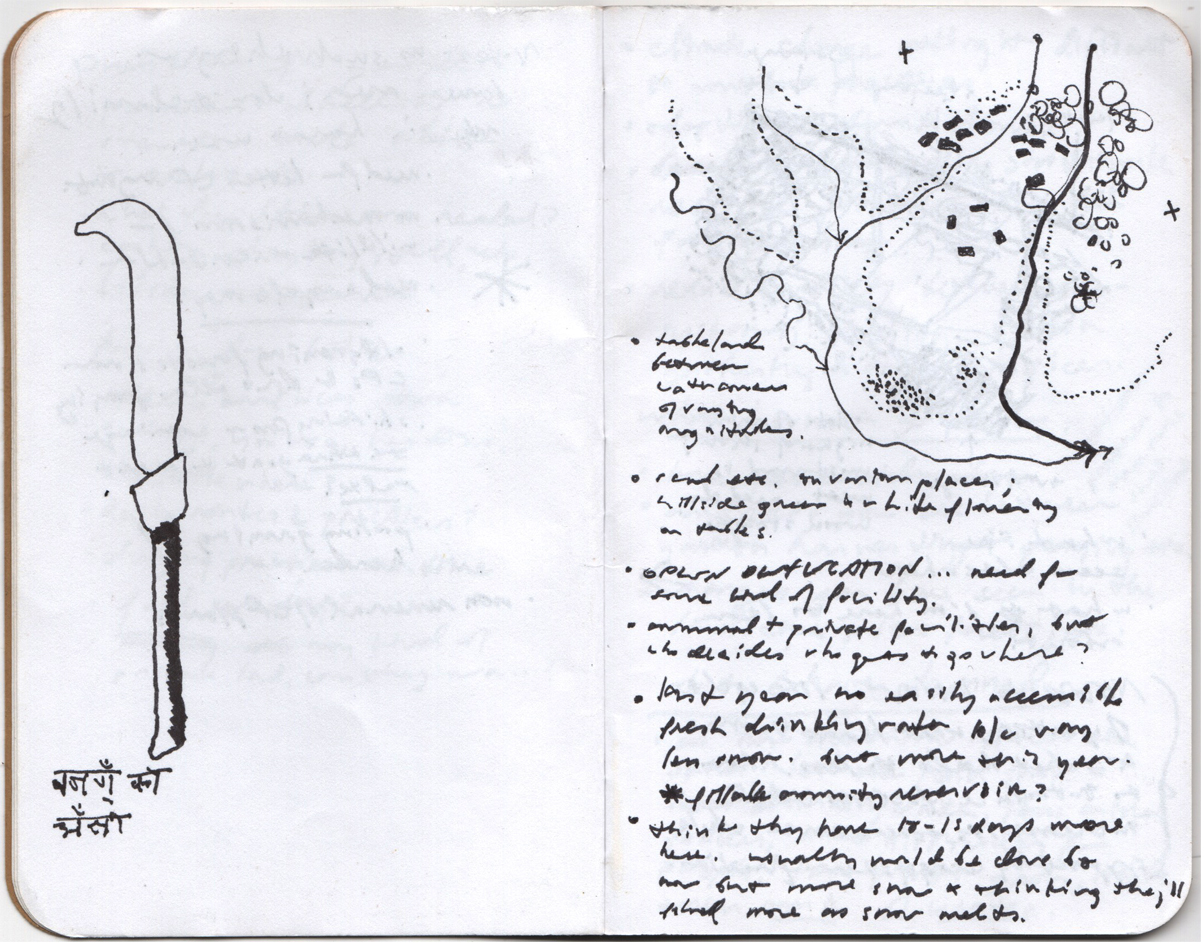 बजगूँ को
• tablelands
between
of varying
magnitudes.
• read etc. in various places,
hillside green w/ white flowering
on tables.
• OPEN DEFECATION... need for
some kind of facility.
• communal + private facilities, but
who decides who goes to go where?
• last year no easily accessible
fresh drinking water b/c very
less snow. but more this year.
* community reservoir?
• thinks they have 10-15 days more
here. usually would be done by
now but more snow & thinking they'll
find more as snow melts.